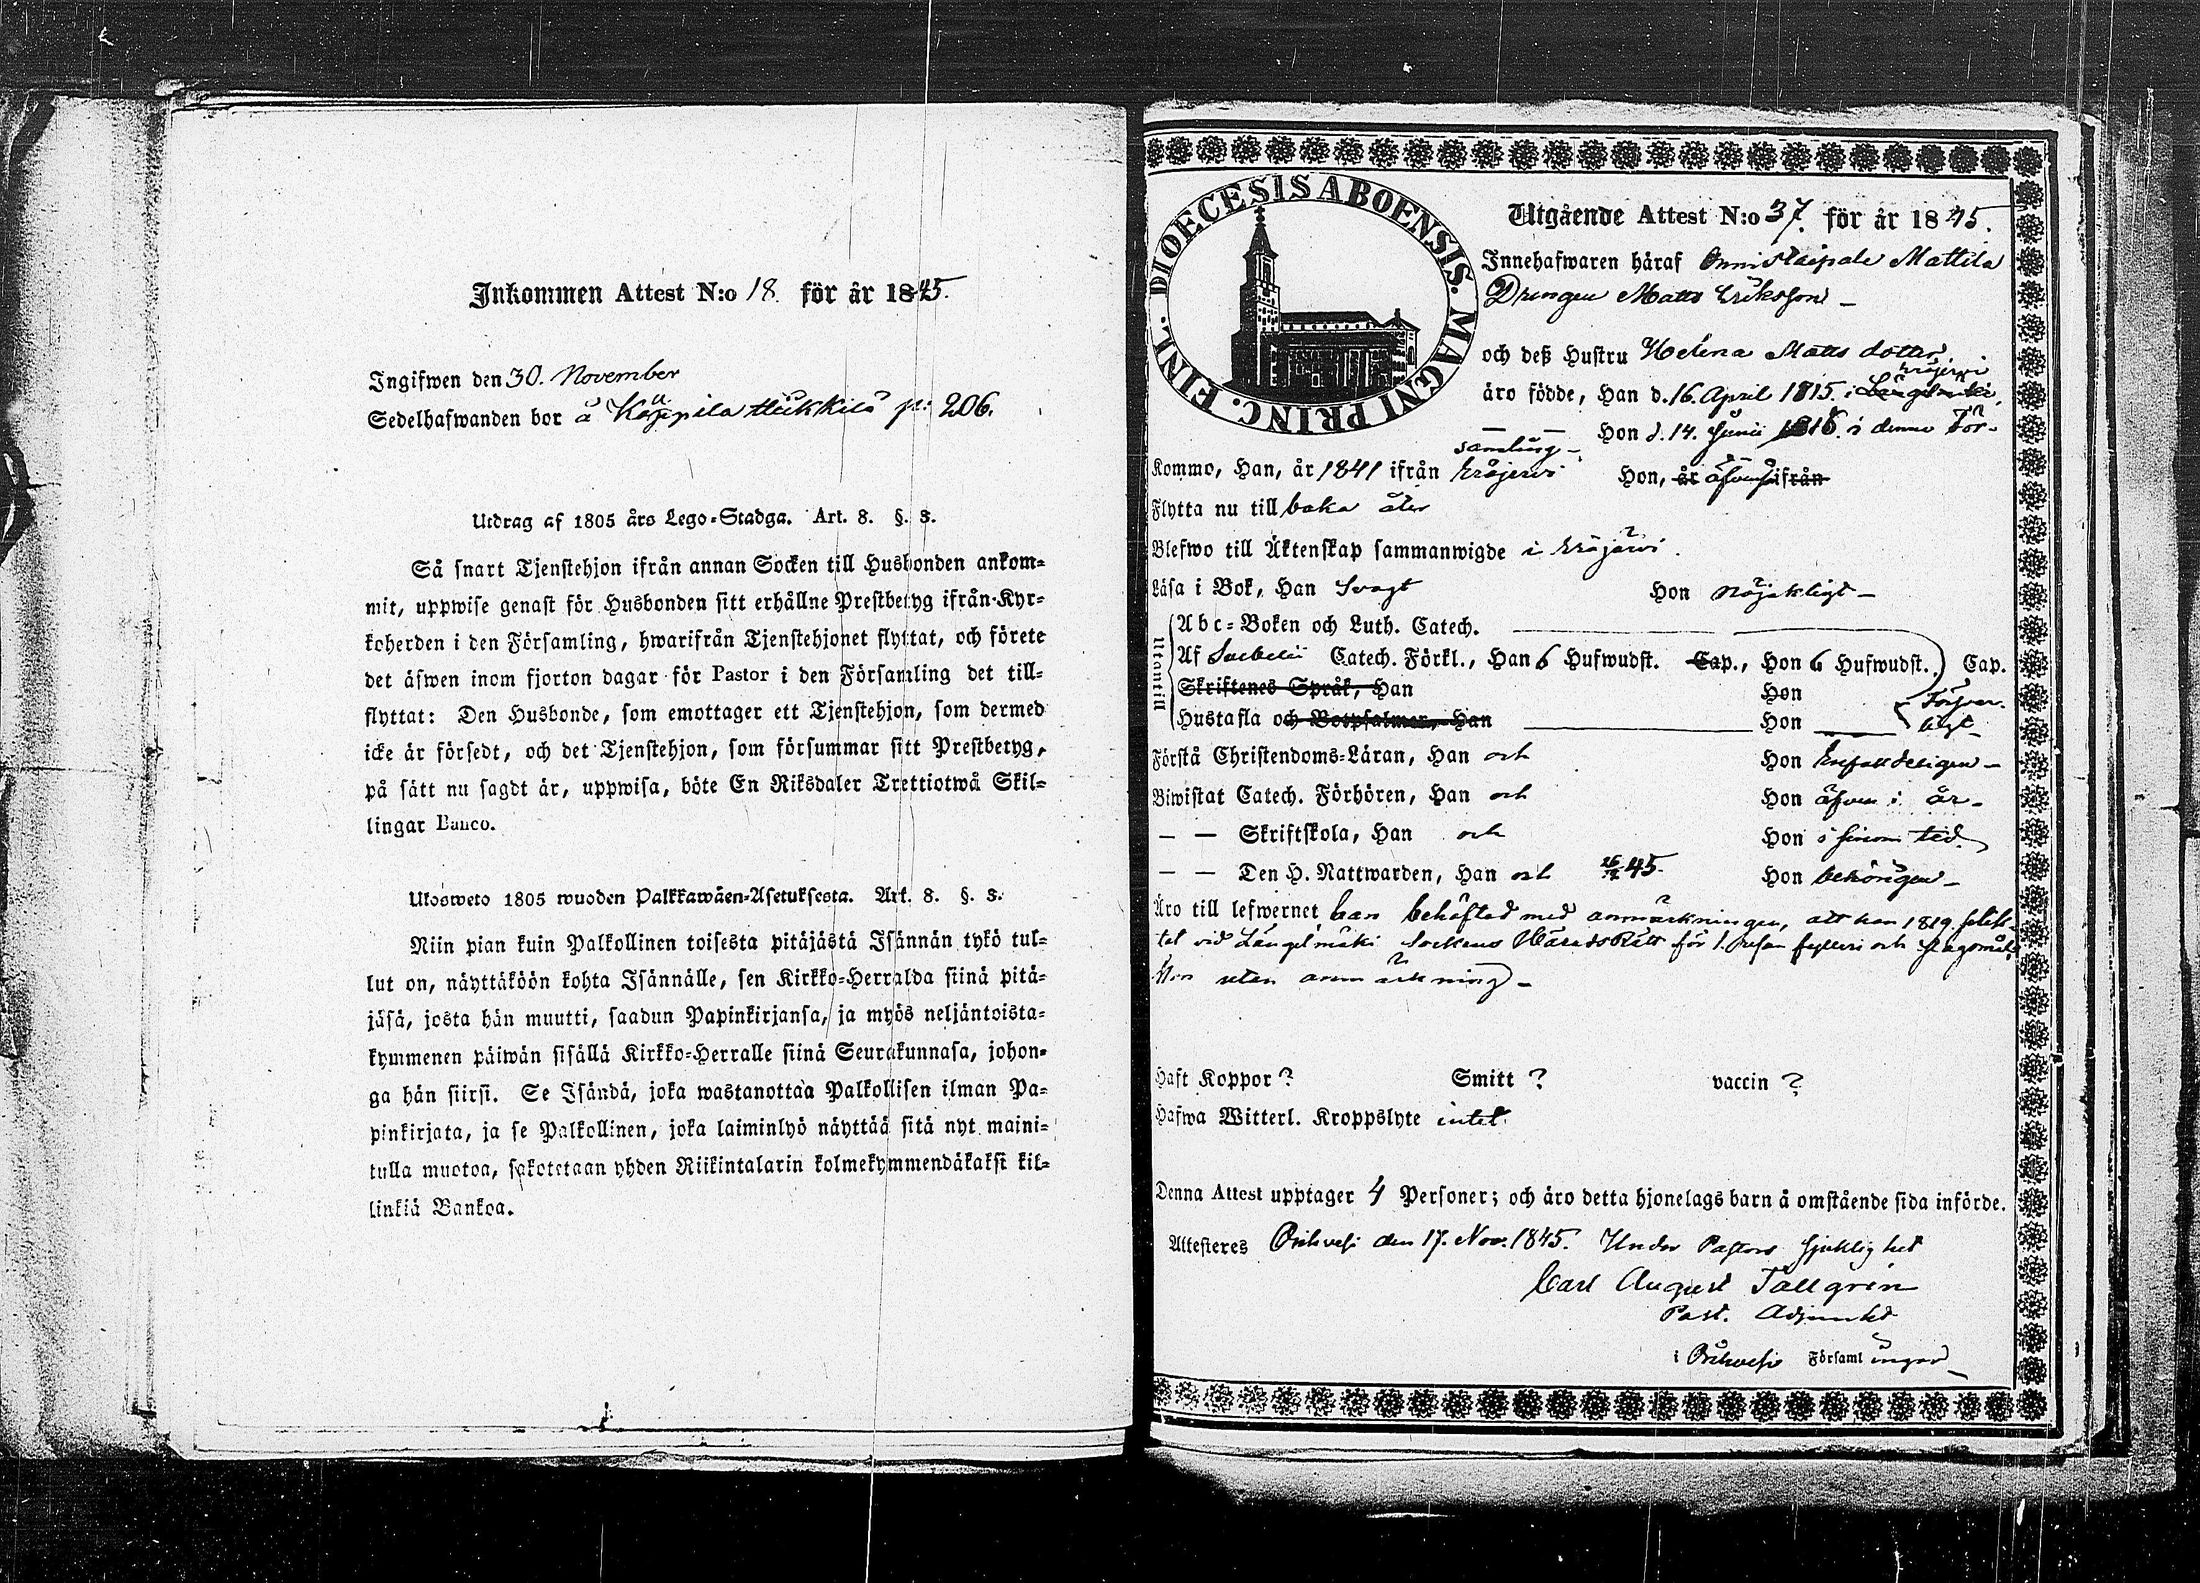 Inkommen Attest N:o 18. för år 1845.
Ingifwen den 30. November
Sedelhafwanden bor å Käppilä Heikkilä p: 206.
Utdrag af 1805 års Lego-Stadga. Art. 8. §. 3.
Så snart Tjenstehjon ifrån annan Socken till Husbonden ankom-
mit, uppwise genast för Husbonden sitt erhållne Prestbetyg ifrån Kyr-
koherden i den Församling, hwarifrån Tjenstehjonet flyttat, och förete
det äfwen inom fjorton dagar för Pastor i den Församling det till-
flyttat: Den Husbonde, som emottager ett Tjenstehjon, som dermed
icke är försedt, och det Tjenstehjon, som försummar sitt Prestbetyg,
på sätt nu sagdt är, uppwisa, böte En Riksdaler Trettiotwå Skil-
lingar Banco.
Ulosweto 1805 wuoden Palkkawäen-Asetuksesta. Art. 8. §. 3.
Niin pian kuin Palkollinen toisesta pitäjästä Isännän tykö tul-
lut on, näyttäköön kohta Isännälle, sen Kirkko-Herralda siinä pitä-
jäsä, josta hän muutti, saadun Papinkirjansa, ja myös neljäntoista-
kymmenen päiwän sisällä Kirkko-Herralle siinä Seurakunnasa, johon-
ga hän siirsi. Se Isändä, joka wastanottaa Palkollisen ilman Pa-
pinkirjata, ja se Palkollinen, joka laiminlyö näyttää sitä nyt maini-
tulla muotoa, sakotetaan yhden Riikintalarin kolmekymmendäkaksi kil-
linkiä Bankoa.
DIOECESIS ABOENSIS. MAGNI PRINC. FINL.
Utgående Attest N:o 37. för år 1845.
Innehafwaren häraf Onnistaipale Mattila
Drengen Matts Eriksson
och deß Hustru Helena Matts dotter
Eräjerwi
äro födde, Han d. 16. April 1815. i Längelmäki,
Hon d. 14. Junii 1816. i denna För-
samling
Kommo, Han, år 1841 ifrån Eräjerwi Hon, år äfven ifrån
Flytta nu till baka åter
Blefwo till Äktenskap sammanwigde i Eräjärwi.
Läsa i Bok, Han Svagt Hon nöjaktligt
Utantill
Abc-Boken och Luth. Catech.
Af Saebelii Catech. Förkl., Han 6 Hufwudst. Cap., Hon 6 Hufwudst., Cap.
Skriftenes Språk, Han Hon
Hustafla och Botpsalmer, Han Hon
Förstå Christendoms-Läran, Han och Hon Enfaldeligen
Biwistat Catech. Förhören, Han och Hon äfven i år
— — Skriftskola, Han och Hon i sinom tid
— — Den H. Nattwarden, Han och 45. Hon behörigen
Äro till lefwernet han behäftad med anmärkningen, att han 1819
tat vid Längelmäki Sockens HäradsRätt för 1. resan fylleri och slagsmål,
Hon utan anmärkning
Haft Koppor ? Smitt ? vaccin ?
Hafwa Witterl. Kroppslyte intet.
Denna Attest upptager 4 Personer; och äro detta hjonelags barn å omstående sida införde.
Attesteres Orihvesi den 17. Nov. 1845. Under Pastors sjuklighet
Carl August Tallgrén
Past. Adjunkt
i Orihvesi Församl ingar